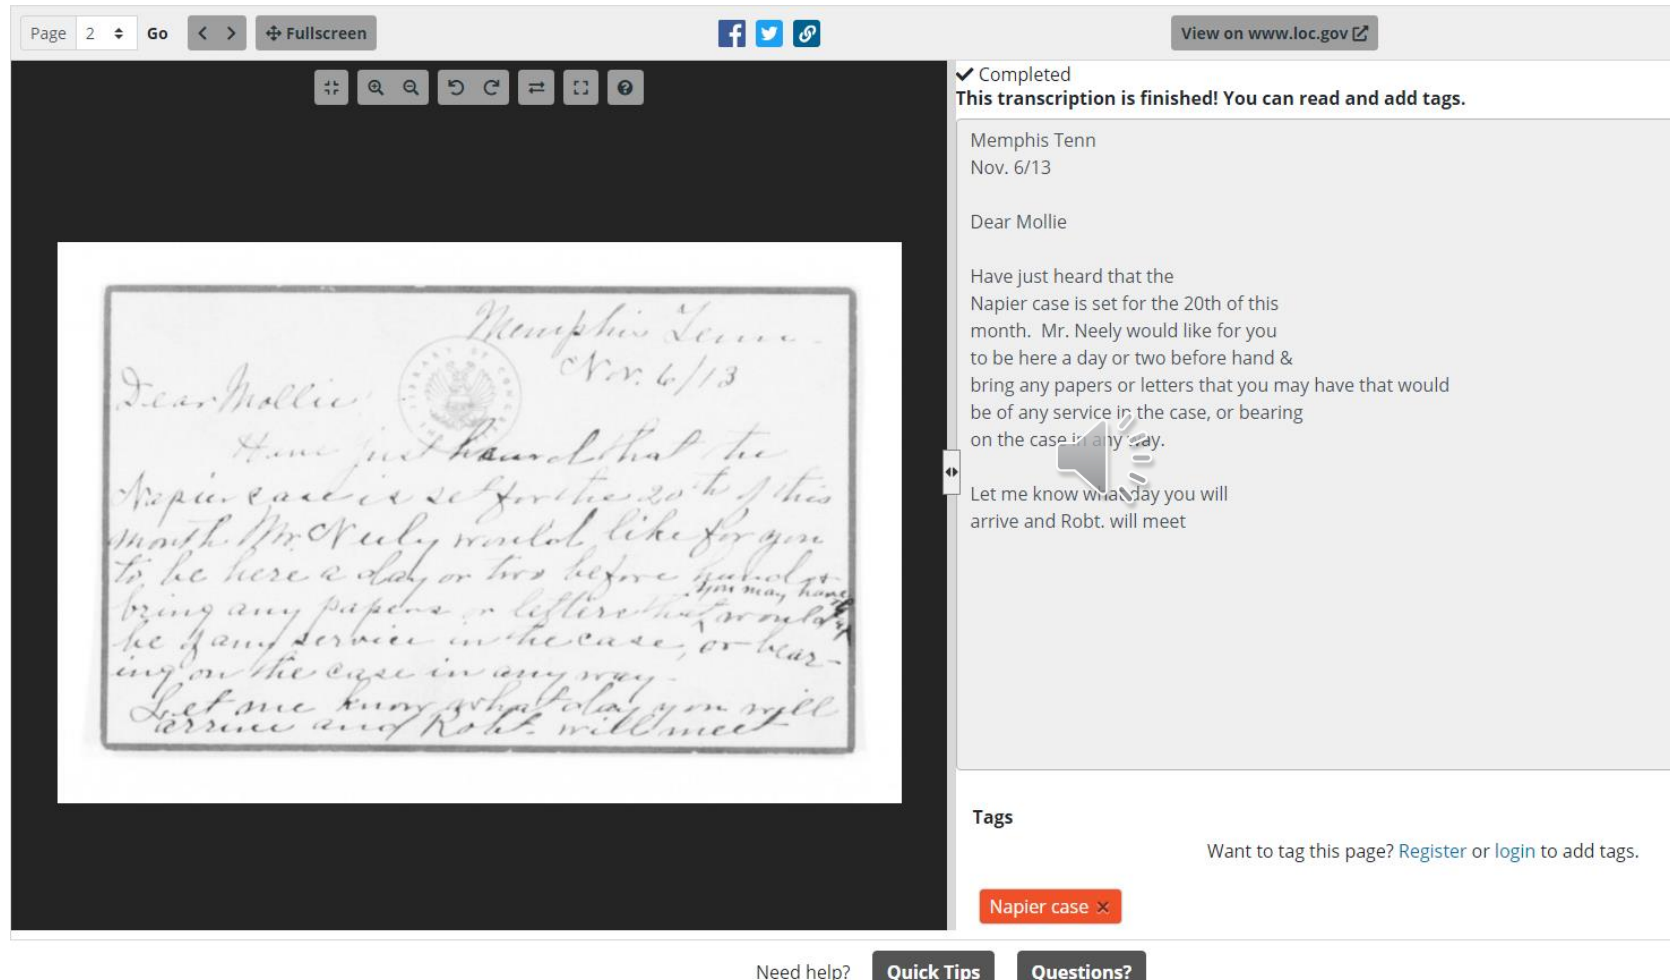 Page 2 Go Fullscreen View on www.loc.gov
Completed
This transcription is finished! You can read and add tags.
Memphis Tenn.
Nov. 6/13
Dear Mollie
Have just heard that the
Napier case is set for the 20th of this
month Mr. Neely would like for you
to be here a day or two before hand &
you may have
bring any papers or letters that would
be of any service in the case, or bear-
ing on the case in any way.
Let me know what day you will
arrive and Robt. will meet
LIBRARY OF CONG
Memphis Tenn
Nov. 6/13
Dear Mollie
Have just heard that the
Napier case is set for the 20th of this
month. Mr. Neely would like for you
to be here a day or two before hand &
bring any papers or letters that you may have that would
be of any service in the case, or bearing
on the case in any way.
Let me know what day you will
arrive and Robt. will meet
Tags
Want to tag this page? Register or login to add tags.
Napier case ×
Need help? Quick Tips Questions?